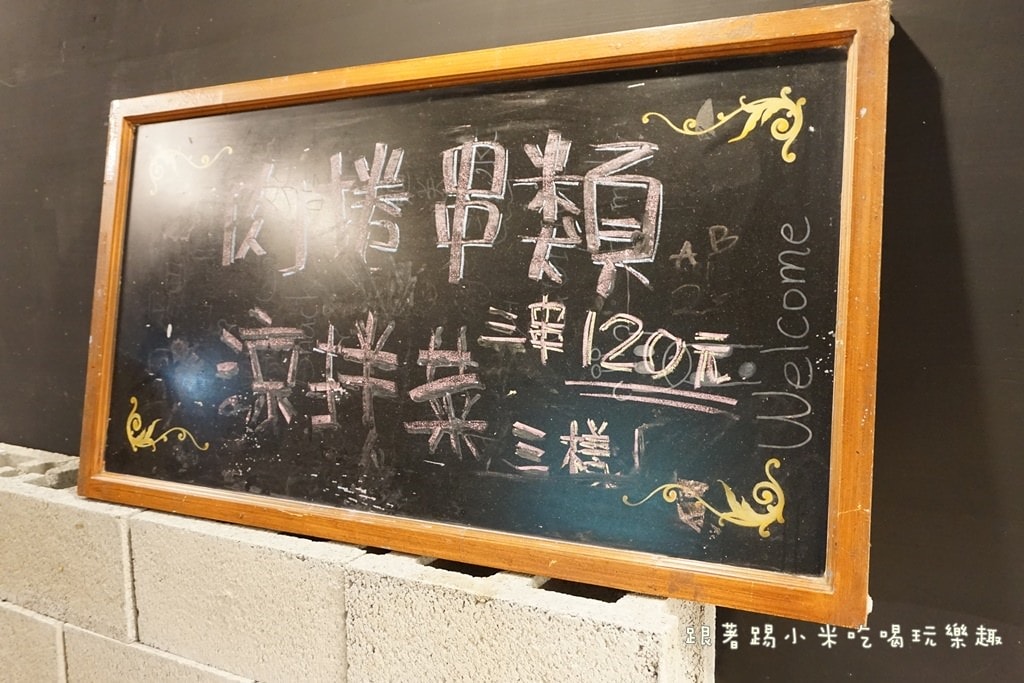 肉捲串類
三串120元
涼拌菜
三樣
Welcome
A B
跟著踢小米吃喝玩樂趣